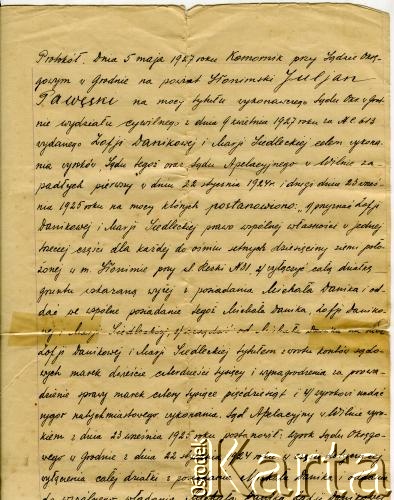 Protokół. Dnia 5 maja 1927 roku Komornik przy Sądzie Okrę-
gowym w Grodnie na powiat Słonimski Juljan
Pawęski na mocy tytułu wykonawczego Sądu Okr. w Grod-
nie wydziału cywilnego z dnia 9 kwietnia 1927 roku za №
wydanego Zofji Danikowej i Marji Siedleckiej celem wykona-
nia wyroków Sądu tegoż oraz Sądu Apelacyjnego w Wilnie za-
padłych pierwszy w dniu 22 stycznia 1924 r. i drugi dnia 23 wrześ-
nia 1925 roku na mocy których postanowiono: "1) przyznać Zofji
Danikowej i Marji Siedleckiej prawo wspólnej własności w jednej
trzeciej części dla każdej do ośmiu setnych dziesięciny ziemi poło-
żonej w m. Słonimie przy ul. 2) wyłączyć całą działkę
gruntu wskazaną wyżej z posiadania Michała Danika i od-
dać we wspólne posiadanie tegoż Michała Danika, Zofji Daniko-
wej i Marji Siedleckiej, 3) zasądzić od Michała Danika na rzecz
Zofji Danikowej i Marji Siedleckiej tytułem zwrotu kosztów sądo-
wych marek dzieście czterdzieści tysięcy i wynagrodzenie za prowa-
dzenie sprawy marek cztery tysiące pięćdziesiąt i 4) wyrokowi nadać
rygor natychmiastowego wykonania. Sąd Apelacyjny w Wilnie wyro-
kiem z dnia 23 września 1925 roku postanowił: wyrok Sądu Okręgo-
wego w Grodnie z dnia 22 stycznia 1924 roku w części dotyczącej
wyłączenia całej działki z posiadania Michała Danika i oddania
do wspólnego władania Michała Danika Zofji Danikowej
Ośrodek
Karta